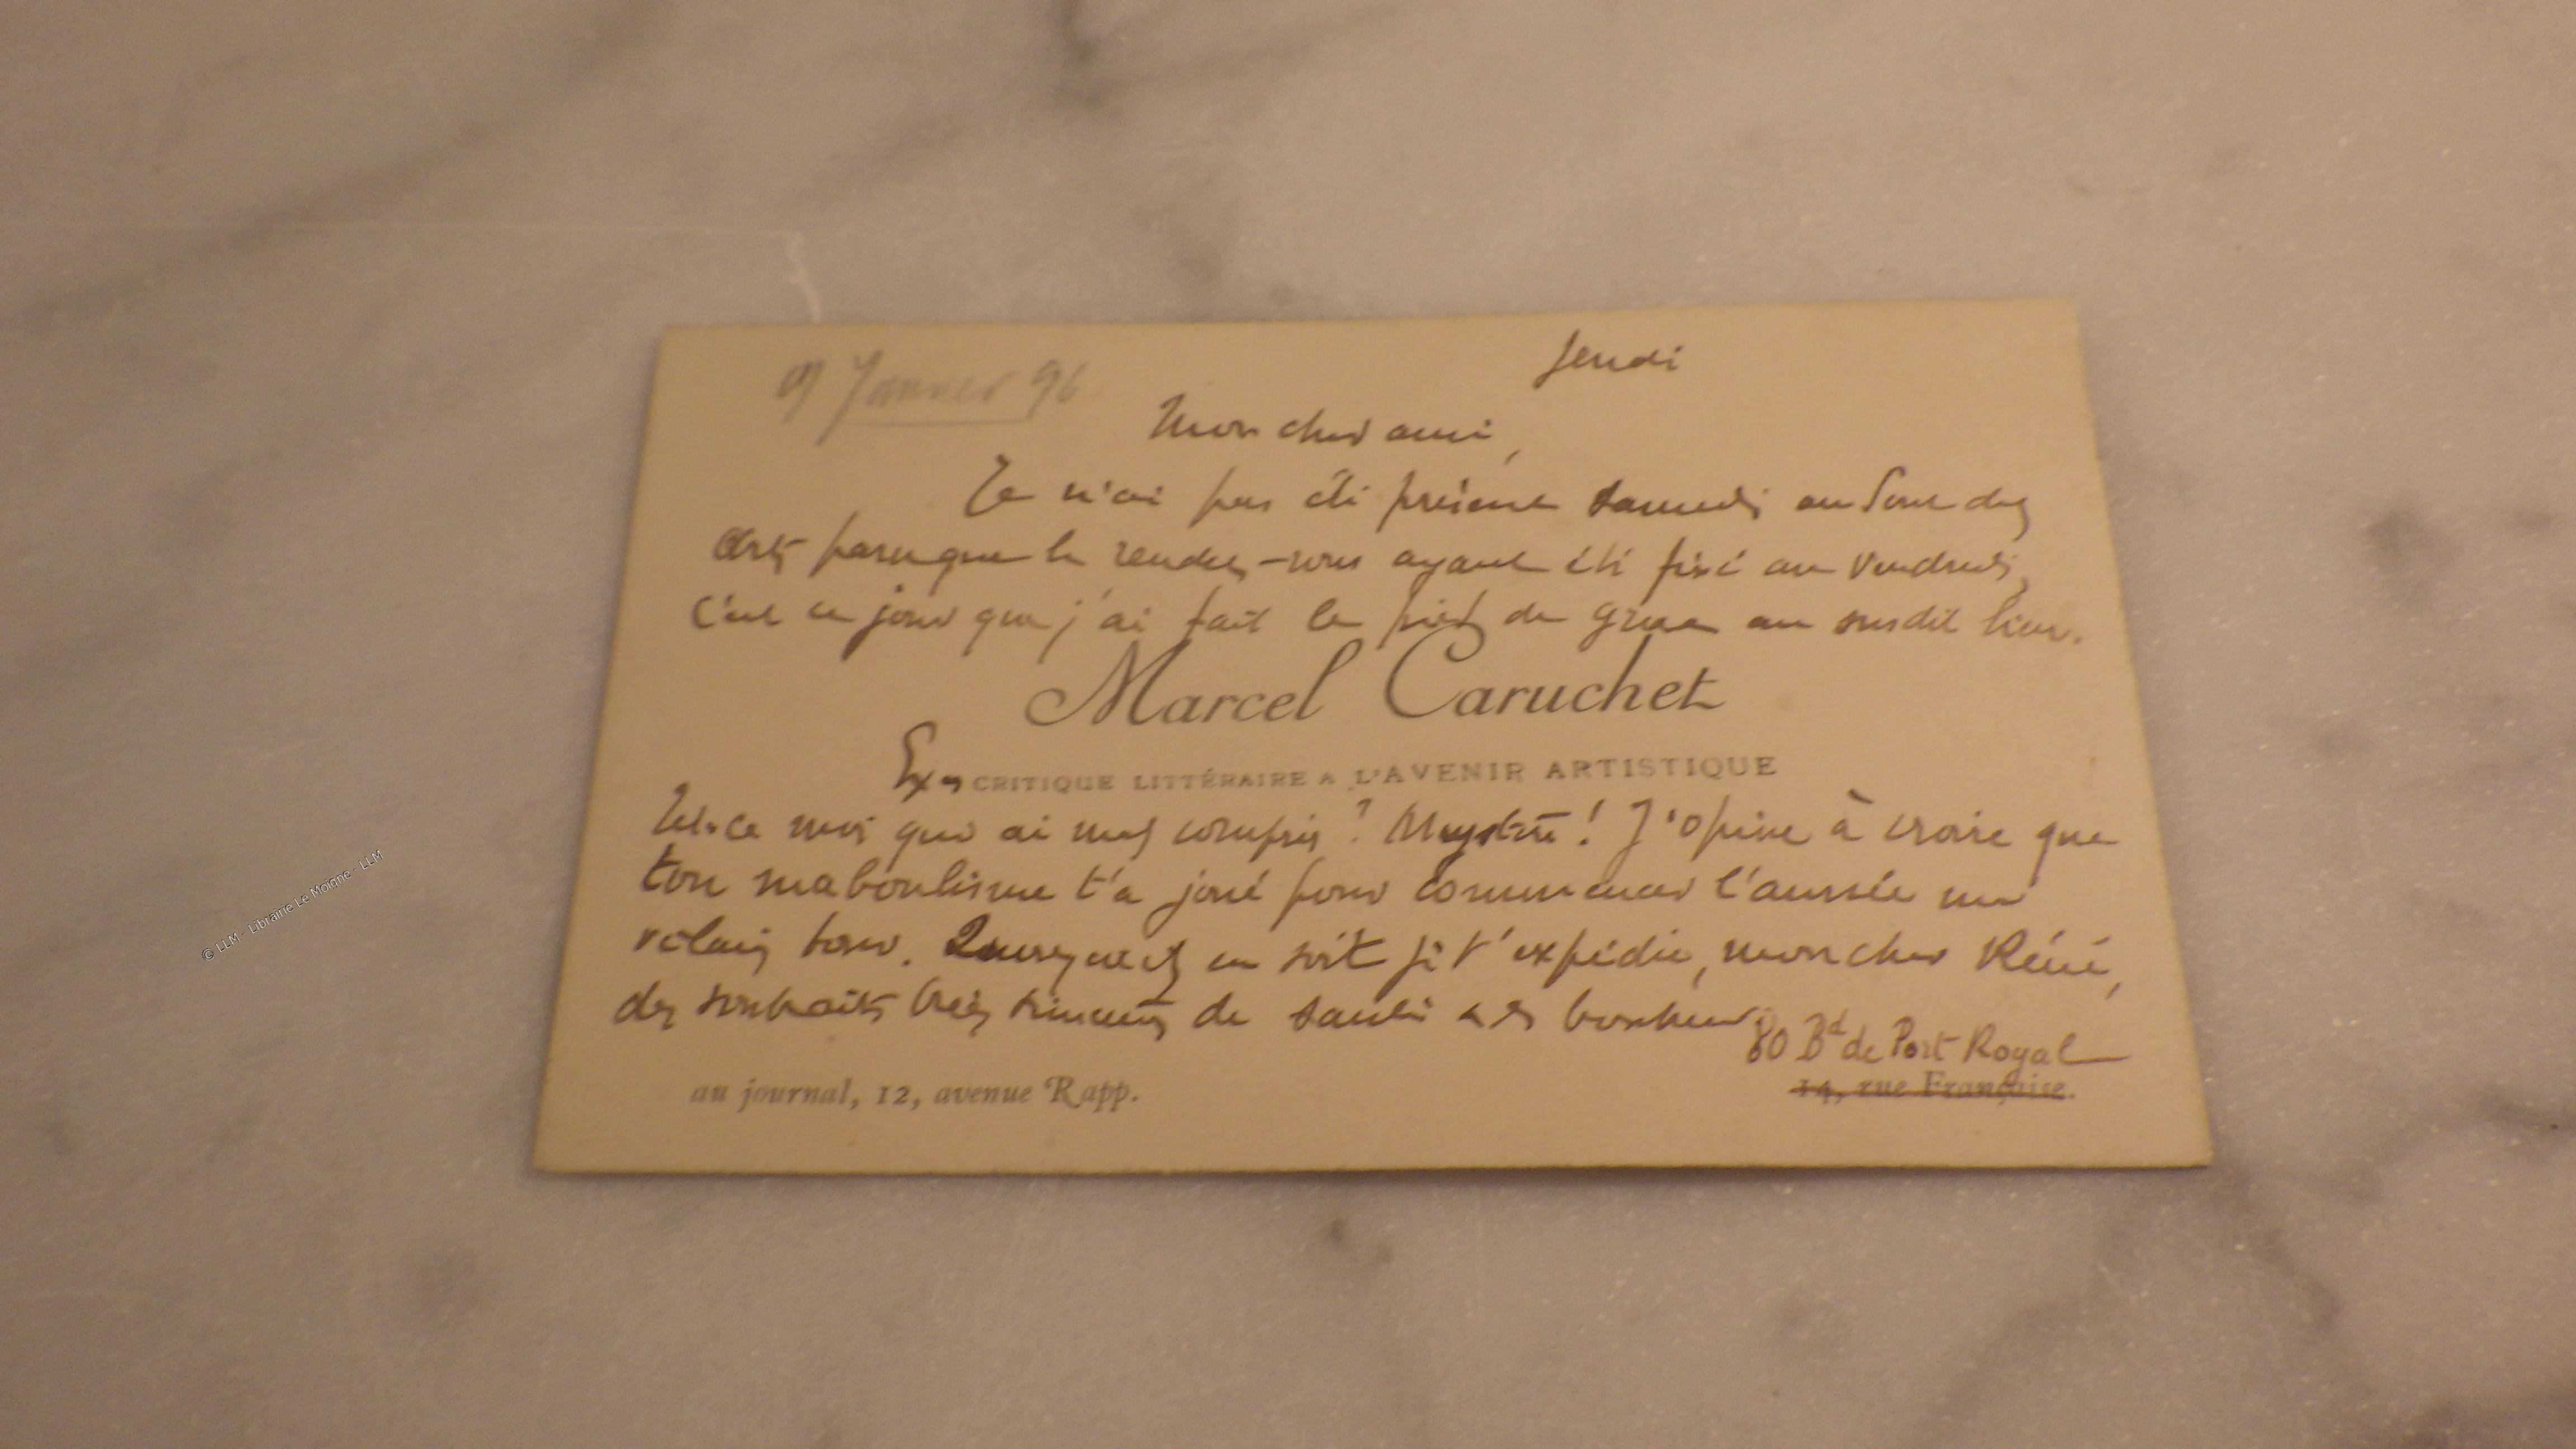 9 Janvier 96
Jeudi
Mon cher ami,
Je n'ai pas été présent samedi au Pont des
Arts parce que le rendez-vous ayant été fixé au vendredi,
c'est ce jour que j'ai fait le pied de grue au susdit lieu.
Marcel Caruchet
Ex-CRITIQUE LITTÉRAIRE A L'AVENIR ARTISTIQUE
Est-ce moi qui ai mal compris? Mystère! J'opine à croire que
ton maboulisme t'a joué pour commencer l'année un
vilain tour. Quoiqu'il en soit je t'expédie, mon cher Réné,
des souhaits très sincères de santé et de bonheur.
80 Bd de Port Royal
au journal, 12, avenue Rapp.
14, rue Française.
© LLM - Librairie Le Moigne - LLM